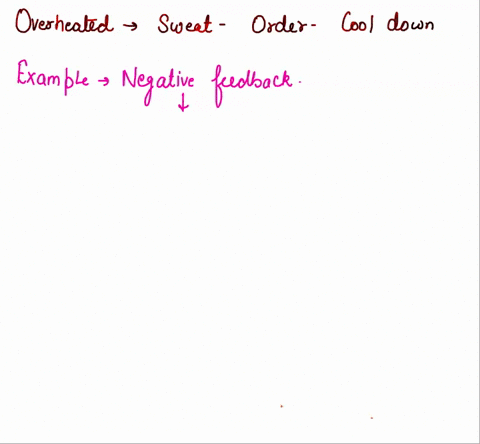 Overheated → Sweat - Order - Cool down
Example → Negative feedback.
↓